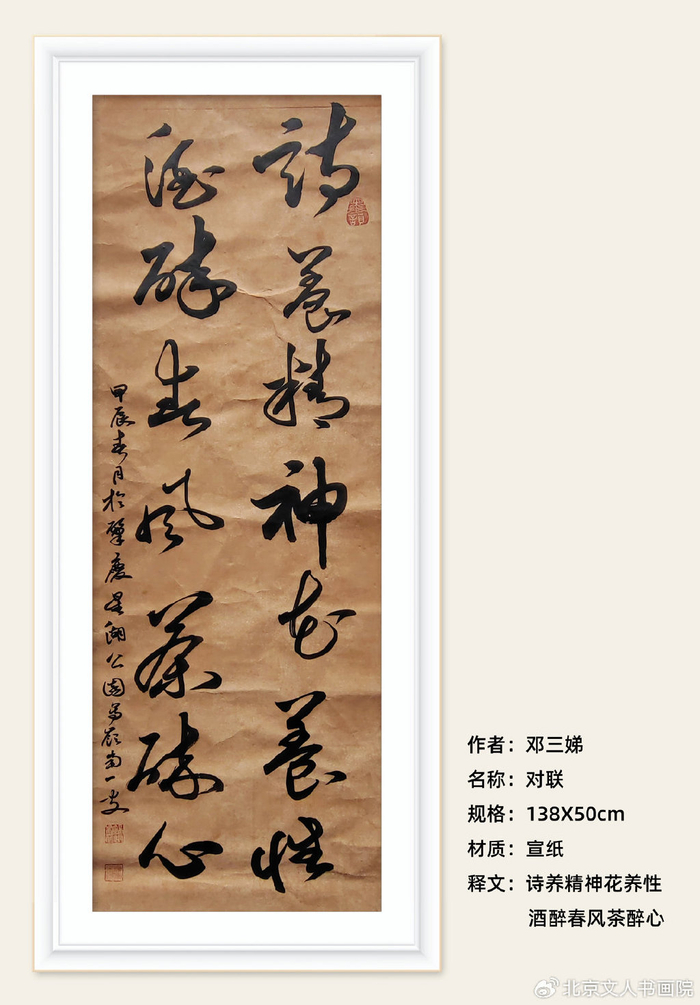 詩養精神花養性
酒醉春風茶醉心
甲辰春月於肇慶星湖公園
作者：邓三娣
名称：对联
规格：138X50cm
材质：宣纸
释文：诗养精神花养性
酒醉春风茶醉心
北京文人书画院